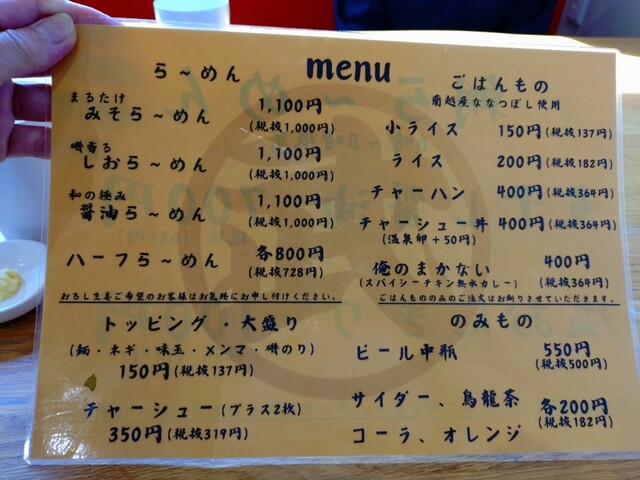 menu
ら～めん
まるたけ
みそら～めん 1,100円
(税抜1,000円)
磯香る
しおら～めん 1,100円
(税抜1,000円)
和の極み
醤油ら～めん 1,100円
(税抜1,000円)
ハーフら～めん 各800円
(税抜728円)
おろし生姜ご希望のお客様はお気軽にお申し付けください。
トッピング・大盛り
(麺・ネギ・味玉・メンマ・磯のり)
150円(税抜137円)
チャーシュー(プラス2枚)
350円(税抜319円)
ごはんもの
蘭越産ななつぼし使用
小ライス 150円(税抜137円)
ライス 200円(税抜182円)
チャーハン 400円(税抜364円)
チャーシュー丼 400円(税抜364円)
(温泉卵+50円)
俺のまかない 400円
(スパイシーチキン無水カレー) (税抜364円)
ごはんもののみのご注文はお断りさせていただきます。
のみもの
ビール中瓶 550円
(税抜500円)
サイダー、烏龍茶 各200円
コーラ、オレンジ (税抜182円)